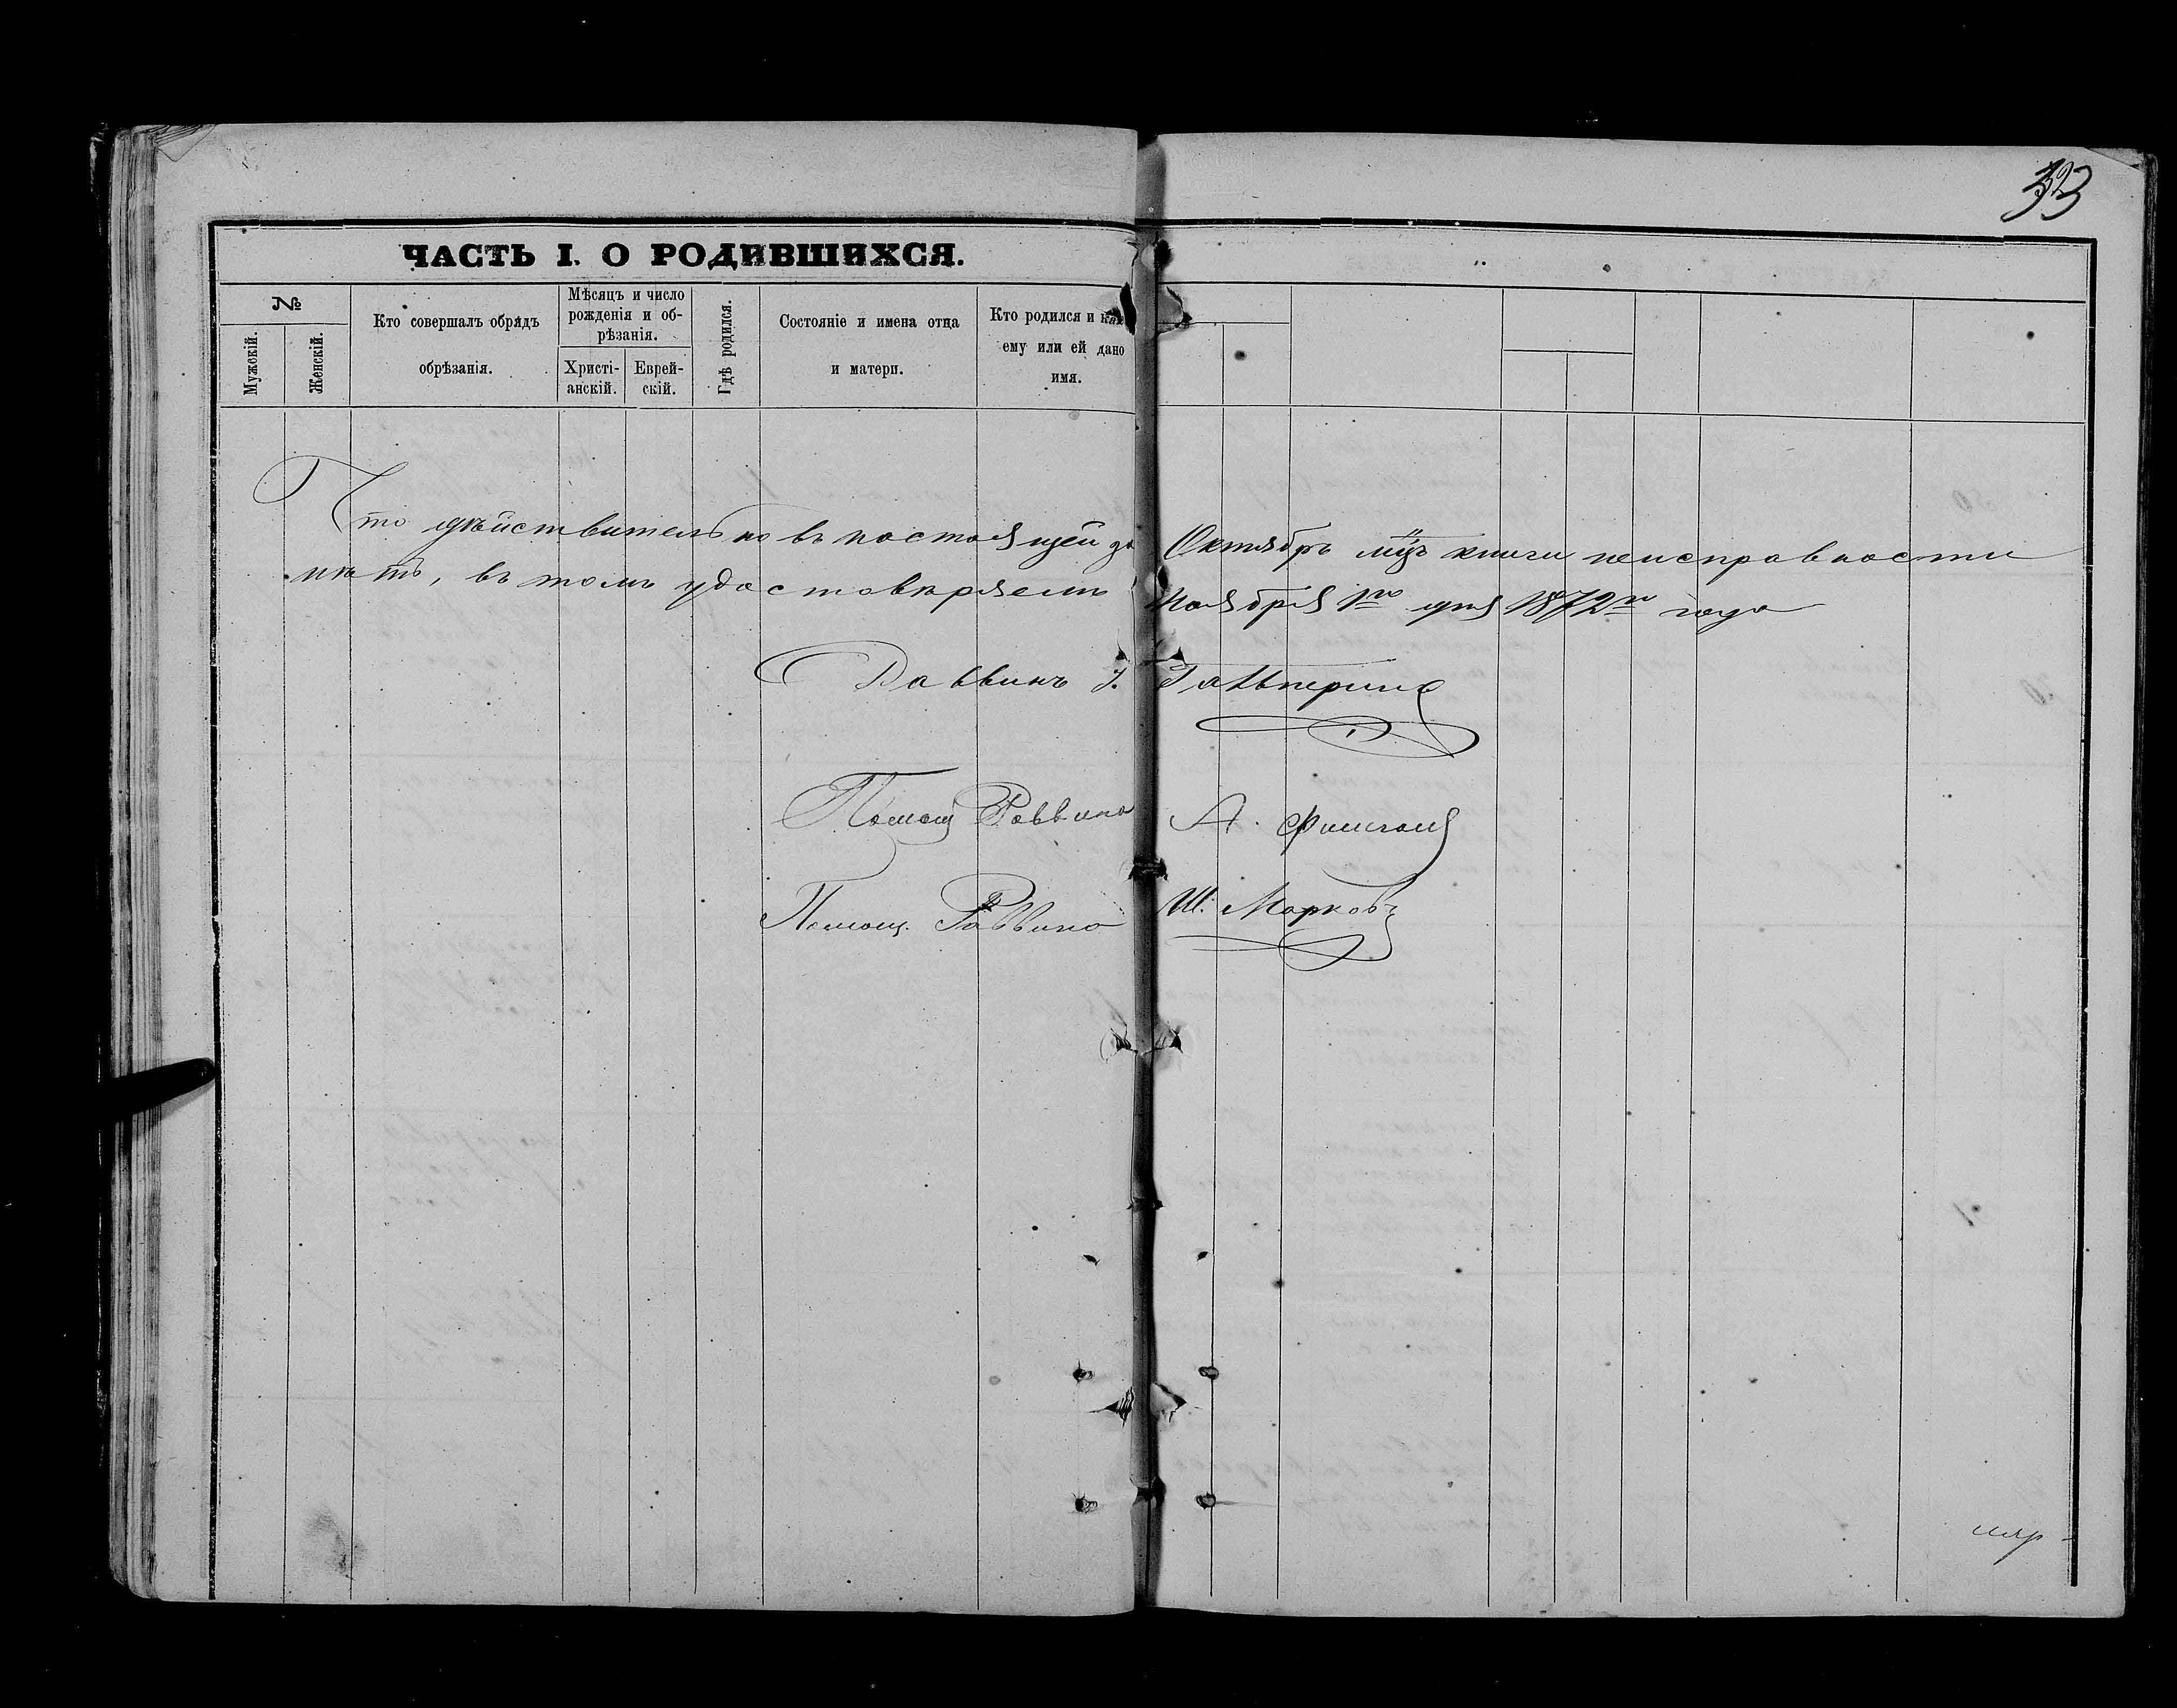 323
ЧАСТЬ I. О РОДИВШИХСЯ.
№
Мужскій.
Женскій.
Кто совершалъ обрядъ
обрѣзанія.
Мѣсяцъ и число
рожденія и об-
рѣзанія.
Христі-
анскій.
Еврей-
скій.
Гдѣ родился.
Состояніе и имена отца
и матери.
Кто родился и как
ему или ей дано
имя.
Что дѣйствительно въ настоящей за Октябрь мцъ книги неисправности
нѣтъ, въ томъ удостовѣряемъ Ноября 1го дня 1872го года
Раввинъ І. Гальперинъ
Помощ Раввина А.
Помощ. Раввина Ш. Марковъ